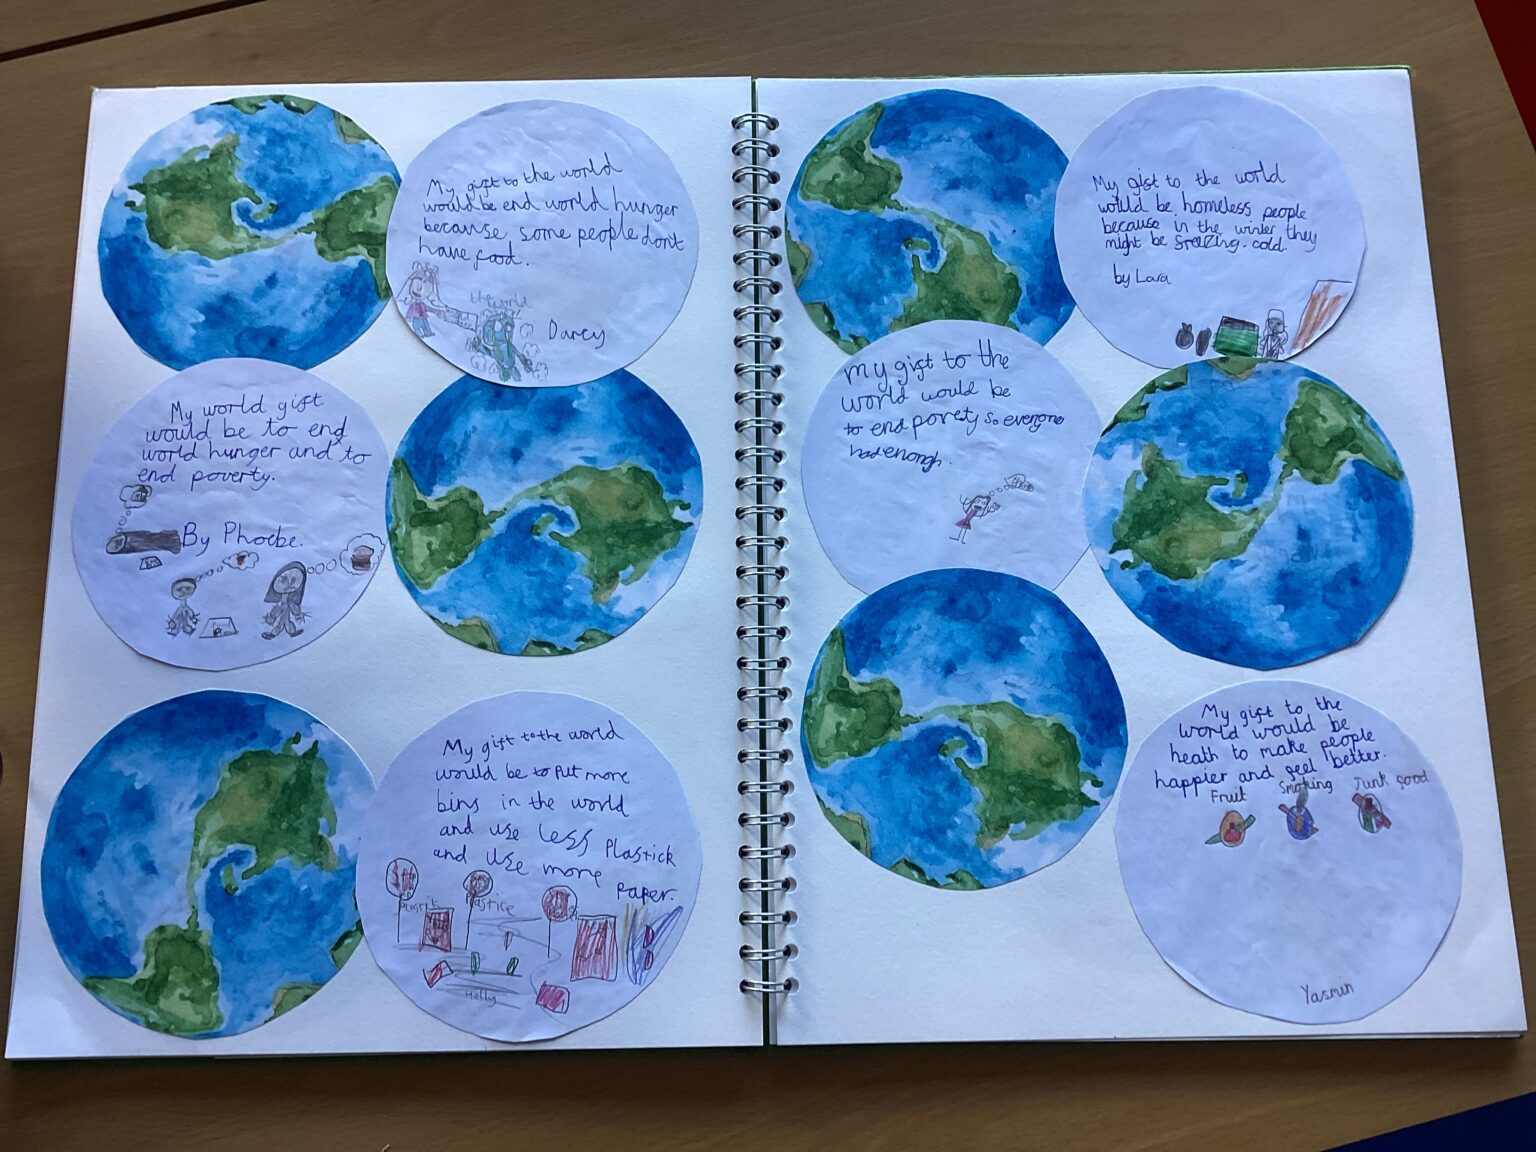 My gift to the world
would be end world hunger
because some people dont
have food.
the world
Darcy
My world gift
would be to end
world hunger and to
end poverty.
By Phoebe.
Food
My gift to the world
would be to Put more
bins in the world
and use less Plastick
and use more
paper.
Plastick
Plastice
Holly
My gift to the world
would be homeless people
because in the winter they
might be freezing cold.
by Lara
my gift to the
world would be
to end porety so everyone
had enough.
My gift to the
world would be
heath to make people
happier and feel better.
Fruit Smoking Junk food
Yasmin